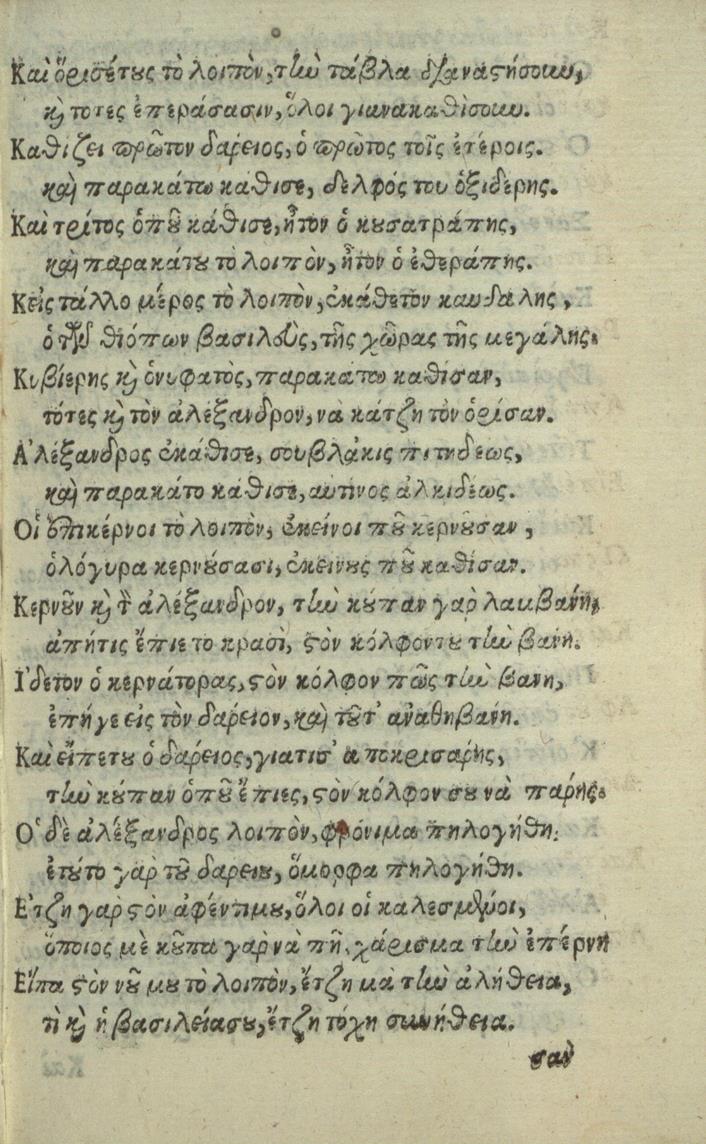 Καὶ ὅρισέτους τὸ λοιπὸν, τὴν τάβλα διὰναστήσουν,
καὶ τοτες ἐπεράσασιν, ὅλοι γιανακαθίσουν.
Καθίζει πρῶτον δαρεῖος, ὁ πρῶτος τοῖς ἑτέροις.
καὶ παρακάτω κάθισε, δελφός του ὀξιδέρης.
Καὶ τρίτος ὁποῦ κάθισε, ἦτον ὁ κουσατράπης,
καὶ παρακάτου τὸ λοιπὸν, ἦτον ὁ ἐθεράπης.
Κεἰς τάλλο μέρος τὸ λοιπὸν, ἐκάθετον καυδαλης,
ὁ τῶν θιόπων βασιλεὺς, τῆς χώρας τῆς μεγάλης.
Κυβίερης καὶ ὀνυφατὸς, παρακάτω καθίσαν,
τότες καὶ τὸν ἀλέξανδρον, νὰ κάτζη τὸν ὁρίσαν.
Ἀλέξανδρος ἐκάθισε, σουβλάκις πιτηδέως,
καὶ παρακάτο κάθισε, αυτινος ἀλκιδέως.
Οἱ ἐπικέρνοι τὸ λοιπὸν, ἐκείνοι ποῦ κερνοῦσαν,
ὁλόγυρα κερνούσασι, ἐκείνους ποῦ καθίσαν.
Κερνοῦν καὶ τὸν ἀλέξανδρον, τὴν κούπαν γαρ λαμβαίνη,
απήτις ἔπιε το κρασὶ, στὸν κόλφοντου τὴν βανη.
Ἰδετον ὁ κερνάτορας, στὸν κόλφον πῶς τὴν βανη,
ἐπήγε εἰς τὸν δαρεῖον, καὶ τοῦτ' αναθηβαίνη.
Καὶ εἶπετου ὁ δαρεῖος, γιατισ' αποκρισαρης,
τὴν κούπαν ὁποῦ ἔπιες, στὸν κόλφον σου νὰ παρης.
Ὁ δὲ ἀλέξανδρος λοιπὸν, φρόνιμα πηλογήθη.
ἐτούτο γαρ τοῦ δαρειου, ὅμορφα πηλογήθη.
Ετζη γαρ στὸν ἀφέντιμου, ὅλοι οἱ καλεσμένοι,
ὅποιος μὲ κοῦπα γαρ νὰ πῆ, χάρισμα τὴν ἐπέρνη
Εἶπα στὸν νοῦ μου τὸ λοιπὸν, ἔτζη μα τὴν ἀλήθεια,
τὶ καὶ ἡ βασιλείασου, ἔτζη τόχη συνήθεια.
σαν